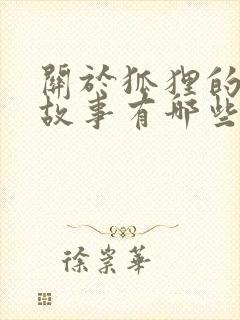 關於狐狸的
故事有哪些
徐崇華